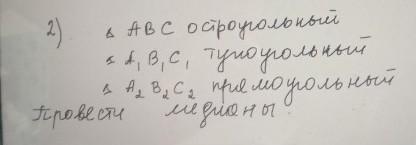 2) Δ ABC остроугольный
Δ A₁B₁C₁ тупоугольный
Δ A₂B₂C₂ прямоугольный
Провести медианы.